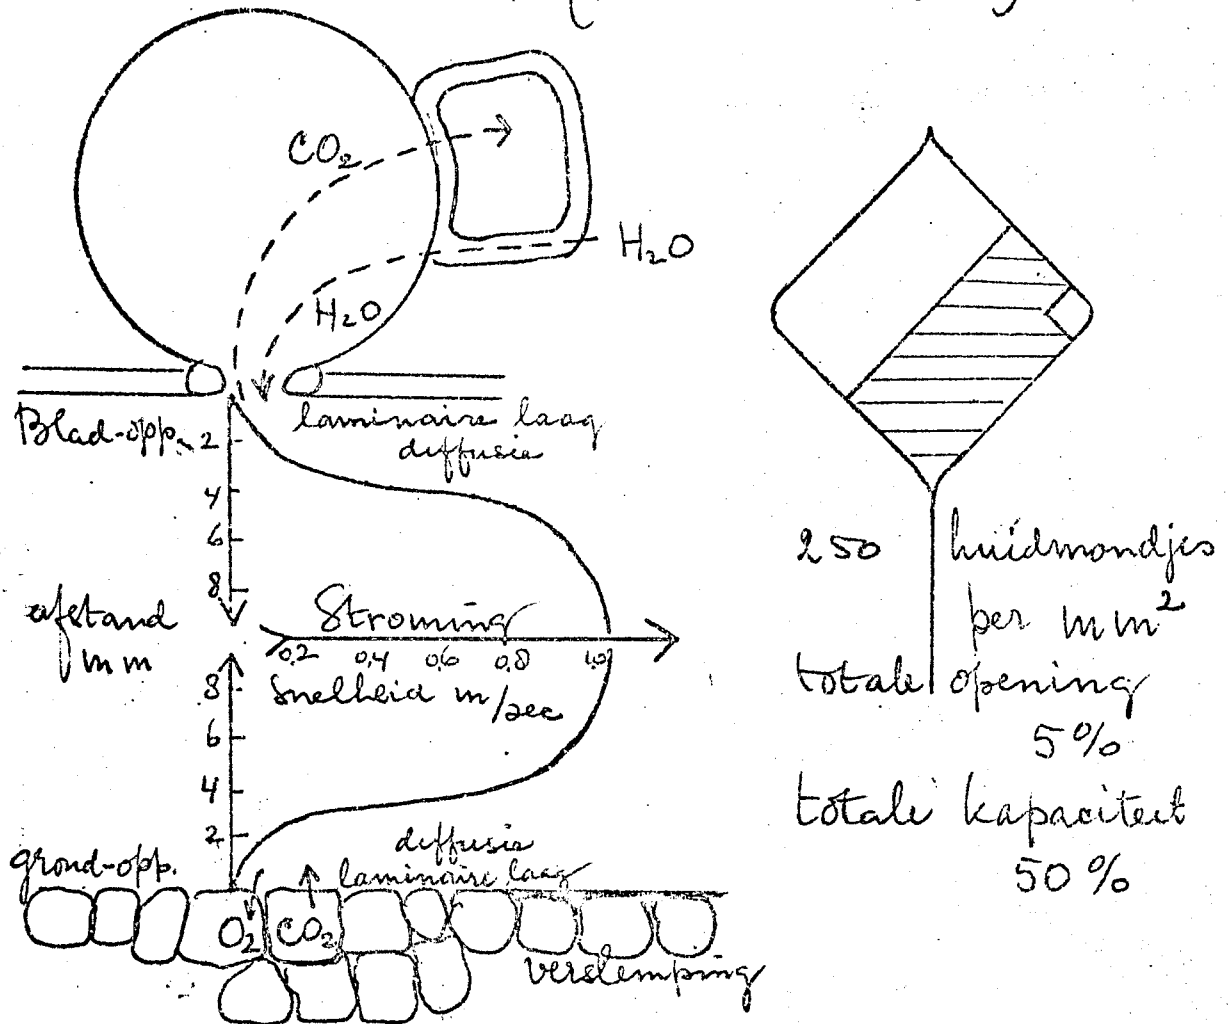 CO₂
H₂O
H₂O
Blad-opp.
laminaire laag
diffusie
2
4
6
8
afstand
mm
Stroming
0,2 0,4 0,6 0,8 1,0
Snelheid m/sec
8
6
4
2
grond-opp.
diffusie
laminaire laag
O₂ CO₂
verslemping
250 huidmondjes
per mm²
totale opening
5%
totale kapaciteit
50%